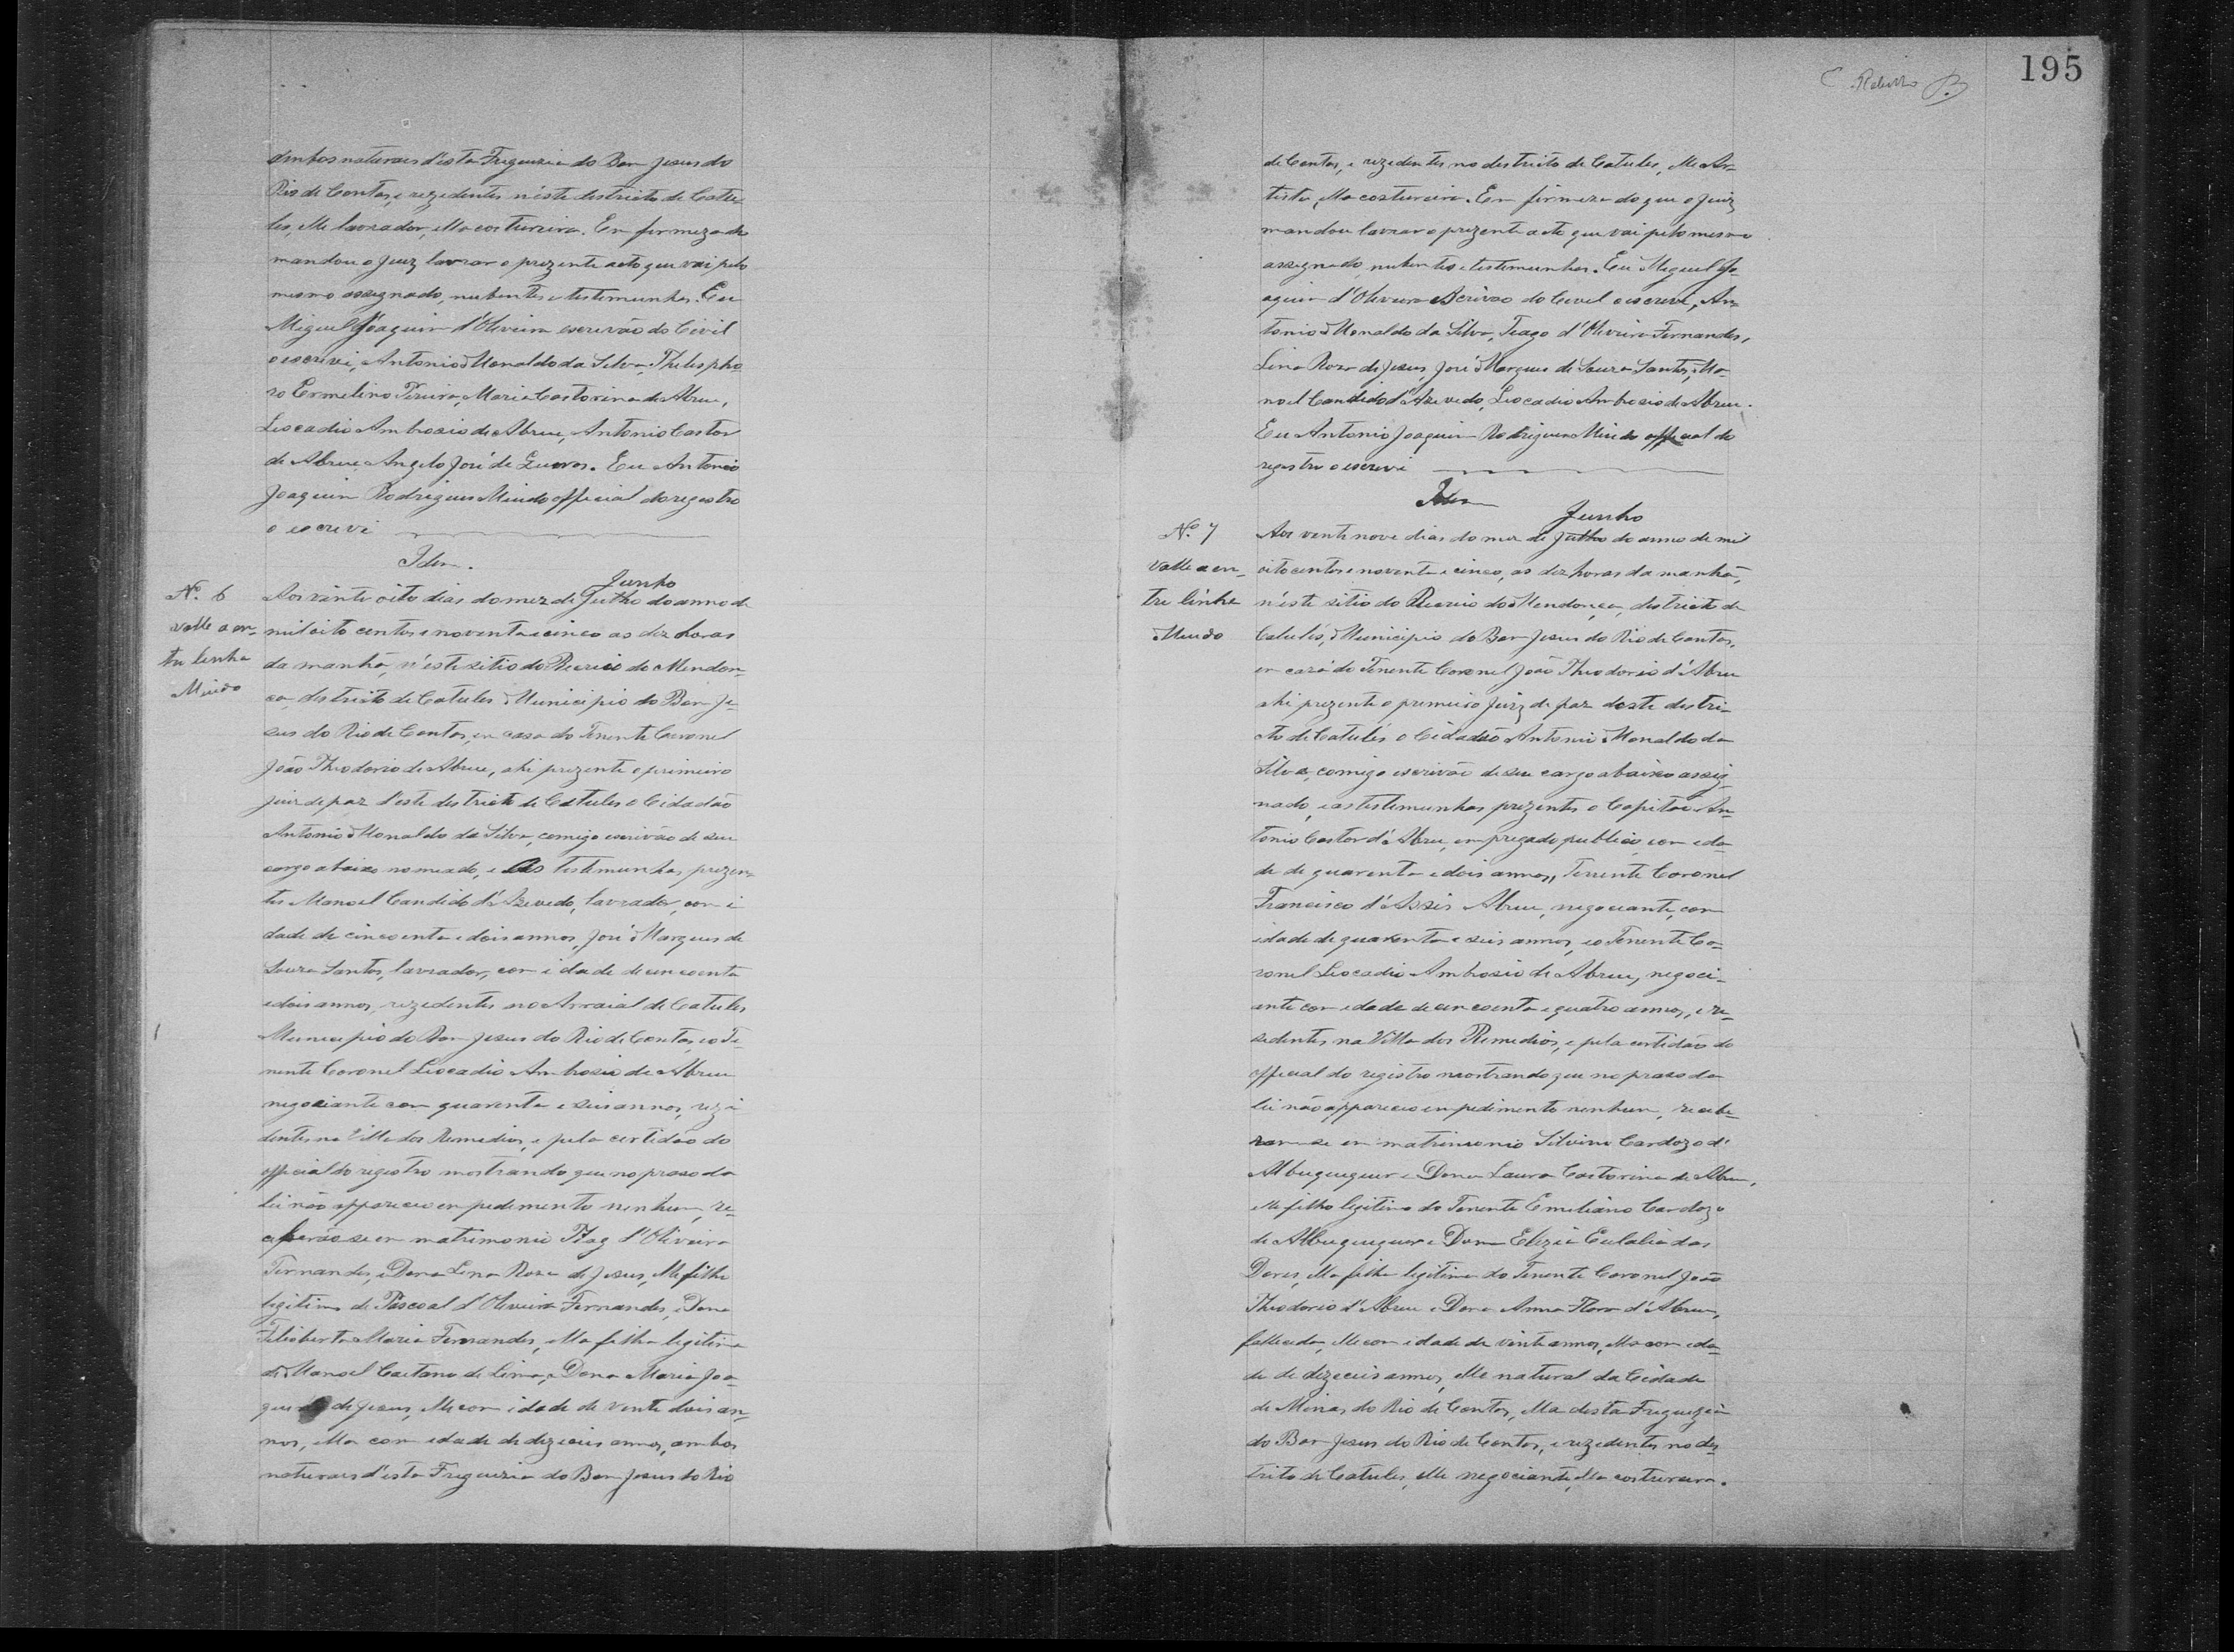 ambos naturaes d'esta Freguezia do Bom Jesus do
Rio de Contas, e rezedentes n'éste destricto de Catu
les, elle lavrador, ella costureira. Em firmeza do
mandou o Juiz lavrar o prezente acto que vai pelo
mesmo assegnado, nubentes e testemunhas. Eu
Miguel Joaquim d'Oliveira escrevão do Civil
o escrevi, Antonio Monaldo da Silva, Thelespho
ro Ermelino Pereira, Maria Castorina de Abreu,
Leocadio Ambrosio de Abreu, Antonio Castor
de Abreu, Angelo José de Die. Eu Antonio
Joaquim Rodrigues Mindo official do registro
o escrevi
Idem.
Junho
Nº. 6
valle a en-
tre linha
Mindo
Aos vinte oito dias do mez de Julho do anno de
mil oito centos e noventa e cinco as dez horas
da manhã, n'este sitio do Recreio do Mendon-
ça, destricto de Catules Municipio do Bom Je-
sus do Rio de Contas, em casa do Tenente Coronel
João Theodorio de Abreu, ahi prezente o primeiro
juiz de paz d'este destricto de Catules o Cidadão
Antonio Monaldo da Silva, comigo escrivão de seu
cargo abaixo nomeado, e as testemunhas prezen-
tes Manoel Candido d'Azevedo, lavrador, com i
dade de cincoenta e dois annos, José Marques de
Souza Santos, lavrador, com idade de cincoenta
e dois annos, rezedentes no Arraial de Catules
Municipio do Bom Jesus do Rio de Contas, e o Te-
nente Coronel Leocadio Ambrosio de Abreu
negociante com quarenta e seis annos, rezi
dentes na Villa dos Remedios, e pela certidão do
official do registro mostrando que no praso da
lei não appareceo empedimento nenhum, re-
ceberão se em matrimonio Tiag d'Oliveira
Fernandes, e Dona Lena Roza de Jesus, elle filho
legitimo de Pascoal d'Oliveira Fernandes, e Dona
Feliberta Maria Fernandes, ella filha legitima
de Manoel Caetano de Lima, e Dona Maria Joa-
qui de Jesus, elle com idade de vente dois an-
nos, ella com edade de dezeseis annos, ambos
naturaes d'esta Freguezia do Bom Jesus do Rio
195
de Contas, e rezedentes no destricto de Catules, elle Ar-
tista, ella costureira. Em firmeza do que o Juiz
mandou lavrar o prezente acto que vai pelo mesmo
assegnado, nubentes e testemunhas. Eu Miguel Jo-
aquim d'Oliveira Escrivão do Civel o escrevi, An-
tonio Monaldo da Silva, Teago d'Oliveira Fernandes,
Lina Roza de Jesus, José Marques de Souza Santos, Ma-
noel Candido d'Azevedo, Leocadio Ambrosio de Abreu.
Eu Antonio Joaquim Rodrigues Mindo official do
registro o escrevi
Idem
Junho
Nº. 7
Valle a en-
tre linha
Mindo
Aos vente nove dias do mez de Julho do anno de mil
oito centos e noventa e cinco, as dez horas da manhã,
n'éste sitio do Recreio do Mendonça, destricto de
Catulés, Municipio do Bom Jesus do Rio de Contas,
em caza do Tenente Coronel João Theodorio d'Abreu
ahi prezente o premeiro Juiz de paz deste destri-
cto de Catulés o Cidadão Antonio Monaldo da
Silva, comigo escrivão de seu cargo abaixo assig
nado, e as testemunhas prezentes o Capitão An-
tonio Castor d'Abreu, empregado publico com eda-
de de quarenta e dois annos, Tenente Coronel
Francisco d'Assis Abreu, negociante, com
idade de quarenta e seis annos, e o Tenente Co-
ronel Leocadio Ambrosio de Abreu, negoci-
ante com edade de cincoenta e quatro annos, e re-
sedentes na Villa dos Remedios, e pela certidão do
official do registro mostrando que no praso da
lei não appareceo empedimento nenhum, recebe-
ram-se em matrimonio Silvino Cardozo d'
Albuquequer e Dona Laura Castorina de Abreu,
elle filho legitimo do Tenente Emeliano Cardozo
de Albuquequer e Dona Elizia Eulalia das
Dores, ella filha legitima do Tenente Coronel João
Theodorio d'Abreu e Dona Anna Flora d'Abreu,
fallecida, elle com edade de vinte annos, ella com eda-
de de dezeceis annos, elle natural da Cidade
de Minas do Rio de Contas, ella desta Freguezia
do Bom Jesus do Rio de Contas, e rezedentes no des-
tricto de Catules, elle negociante, ella costureira.